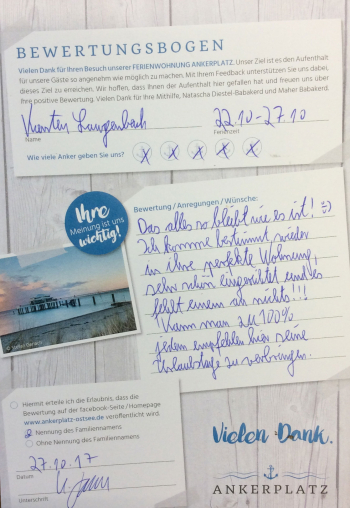 BEWERTUNGSBOGEN
Vielen Dank für Ihren Besuch unserer FERIENWOHNUNG ANKERPLATZ. Unser Ziel ist es den Aufenthalt
für unsere Gäste so angenehm wie möglich zu machen. Mit Ihrem Feedback unterstützen Sie uns dabei,
dieses Ziel zu erreichen. Wir hoffen, dass Ihnen der Aufenthalt hier gefallen hat und freuen uns über
Ihre positive Bewertung. Vielen Dank für Ihre Mithilfe, Natascha Diestel-Babakerd und Maher Babakerd.
Langenbach 22.10-27.10
Name Ferienzeit
Wie viele Anker geben Sie uns? X X X X X
Ihre
Meinung ist uns
wichtig!
Bewertung / Anregungen / Wünsche:
Das alles so bleibt wie es ist! :=)
Ich komme bestimmt wieder
in ihre perfekte Wohnung,
sehr schön eingerichtet und es
fehlt einem an nichts!!!
Kann man zu 100%
jedem empfehlen hier seine
Urlaubstage zu verbringen.
Hiermit erteile ich die Erlaubnis, dass die
Bewertung auf der facebook-Seite / Homepage
www.ankerplatz-ostsee.de veröffentlicht wird.
Nennung des Familiennamens
Ohne Nennung des Familiennamens
27.10.17
Datum
Unterschrift
Vielen Dank.
ANKERPLATZ